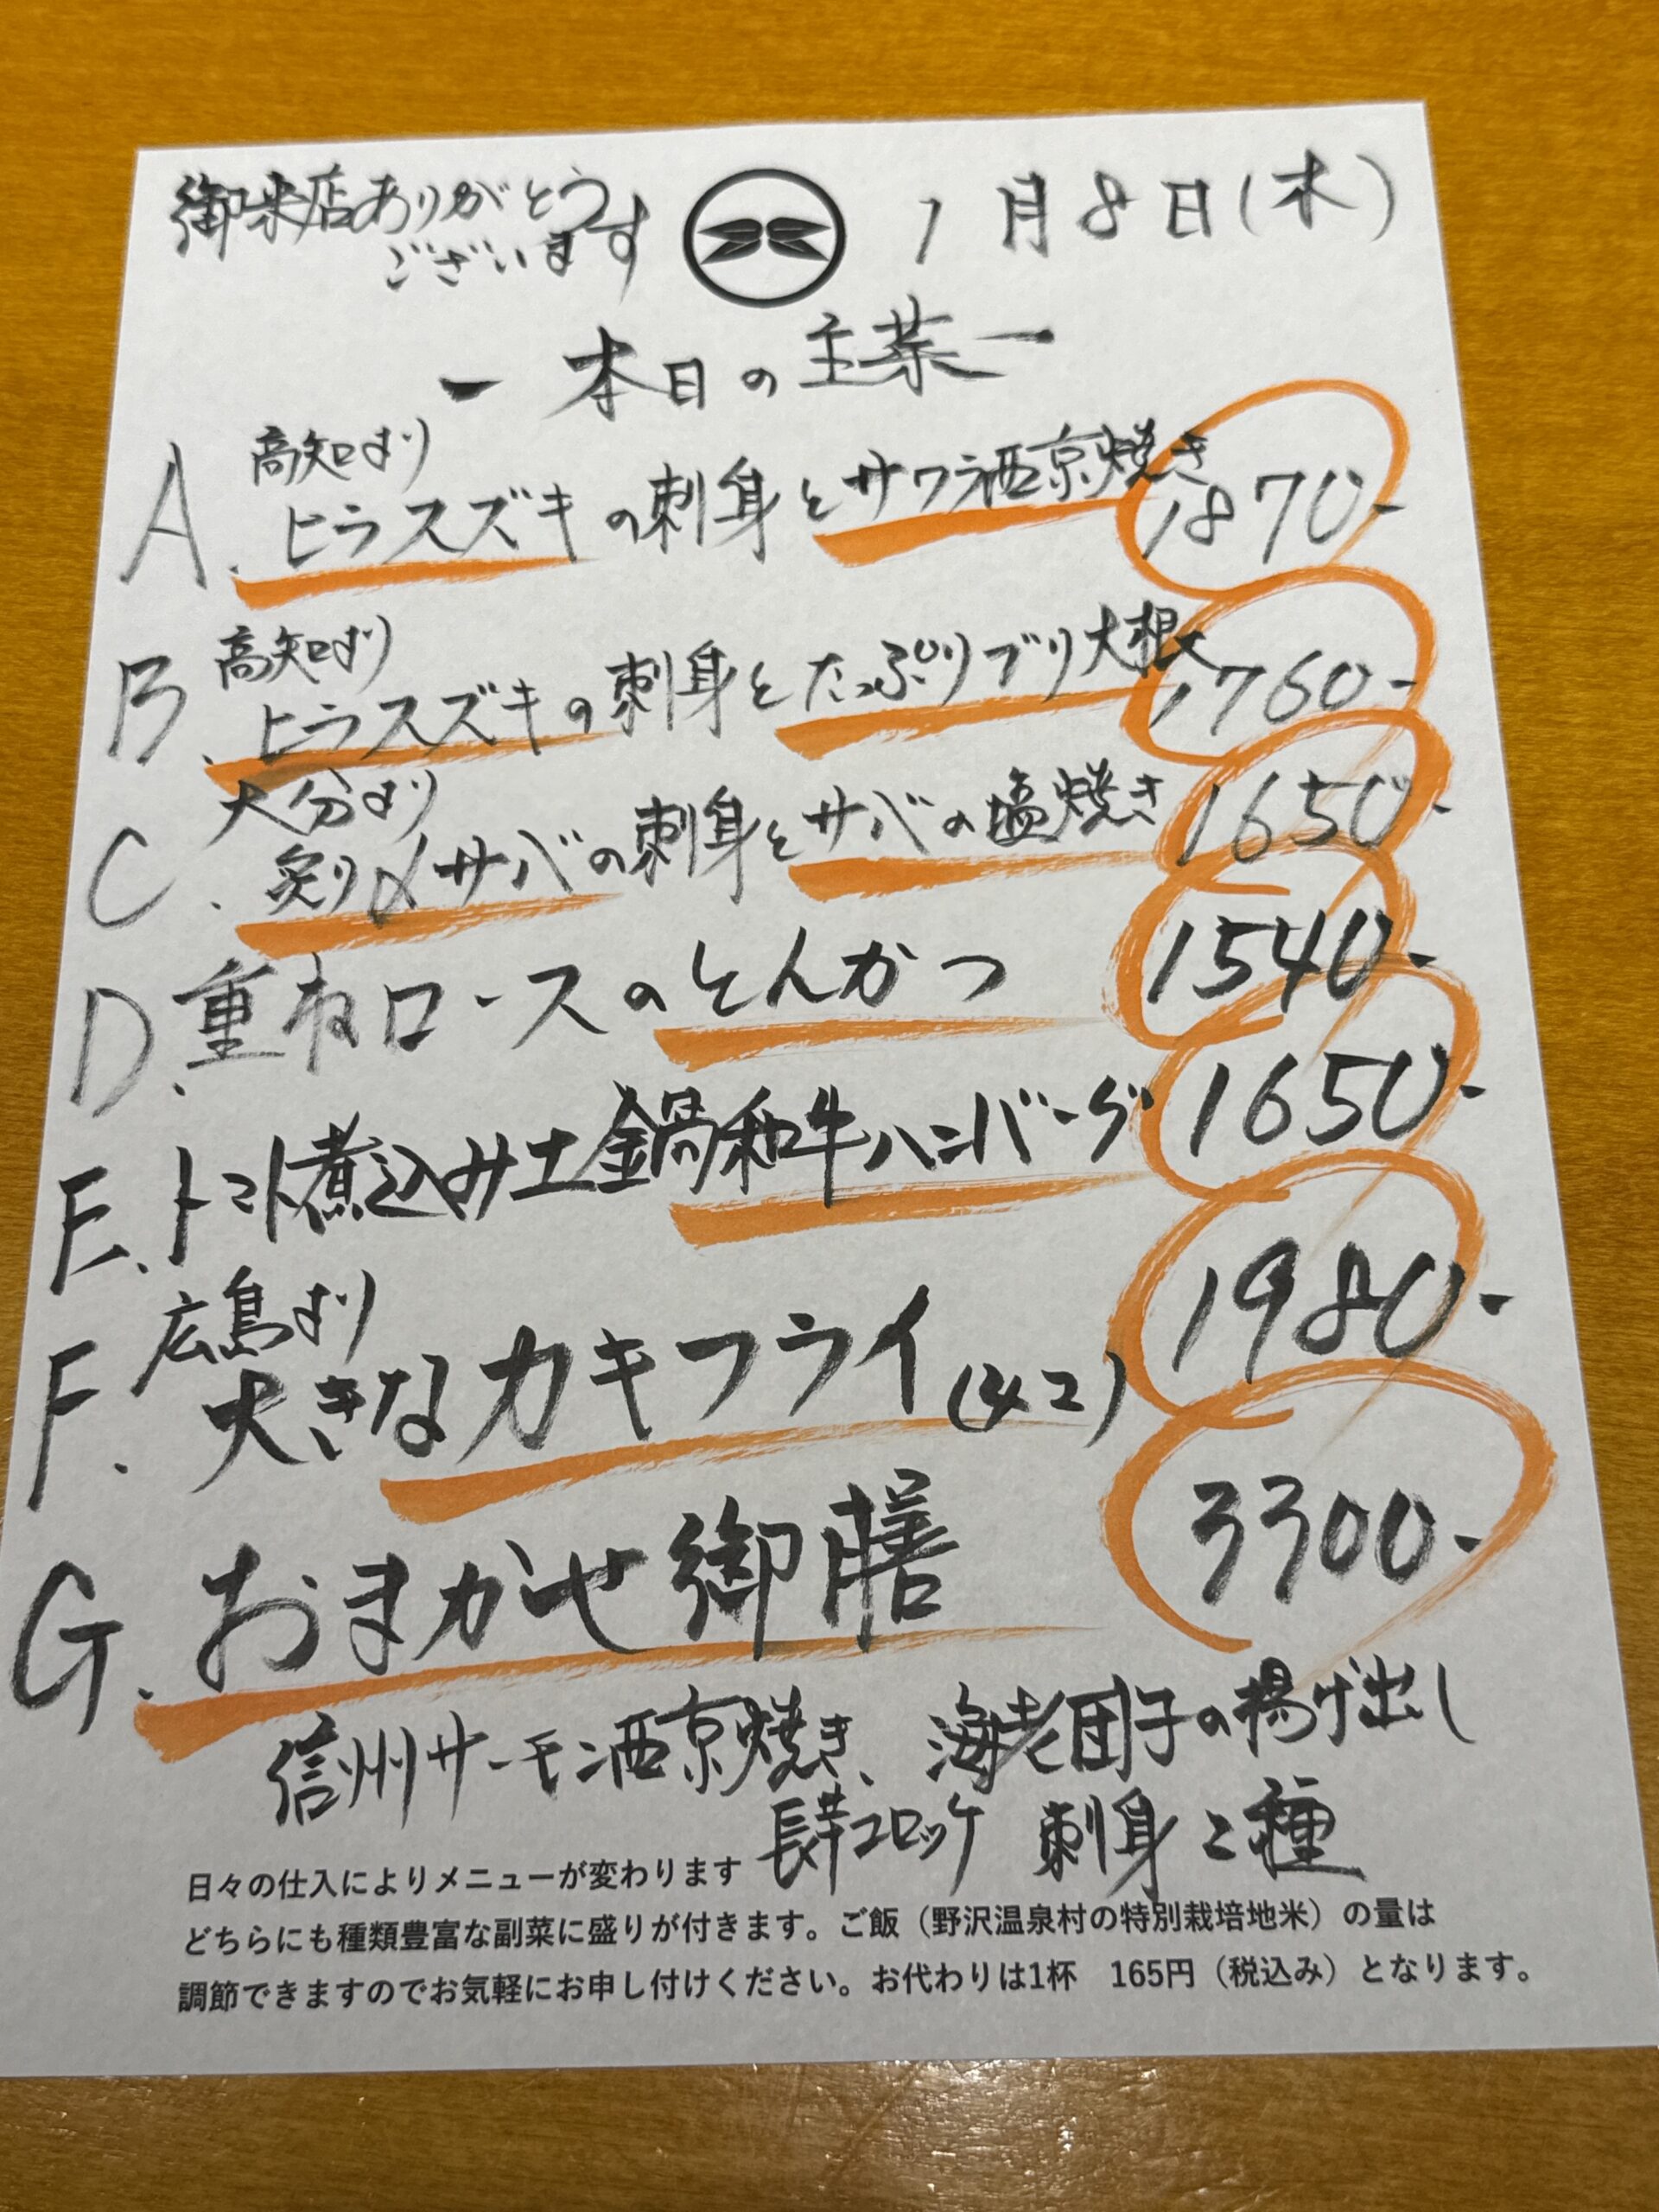 御来店ありがとう
ございます
1月8日(木)
ー本日の主菜ー
高知より
A. ヒラスズキの刺身とサワラ西京焼き 1870-
高知より
B. ヒラスズキの刺身とたっぷりブリ大根 1760-
大分より
C. 炙り〆サバの刺身とサバの塩焼き 1650-
D. 重ねロースのとんかつ 1540-
E. トマト煮込み土鍋和牛ハンバーグ 1650-
広島より
F. 大きなカキフライ(4コ) 1980-
G. おまかせ御膳 3300-
信州サーモン西京焼き、海老団子の揚げ出し
長芋コロッケ 刺身二種
日々の仕入によりメニューが変わります
どちらにも種類豊富な副菜に盛りが付きます。ご飯（野沢温泉村の特別栽培地米）の量は
調節できますのでお気軽にお申し付けください。お代わりは1杯　165円（税込み）となります。